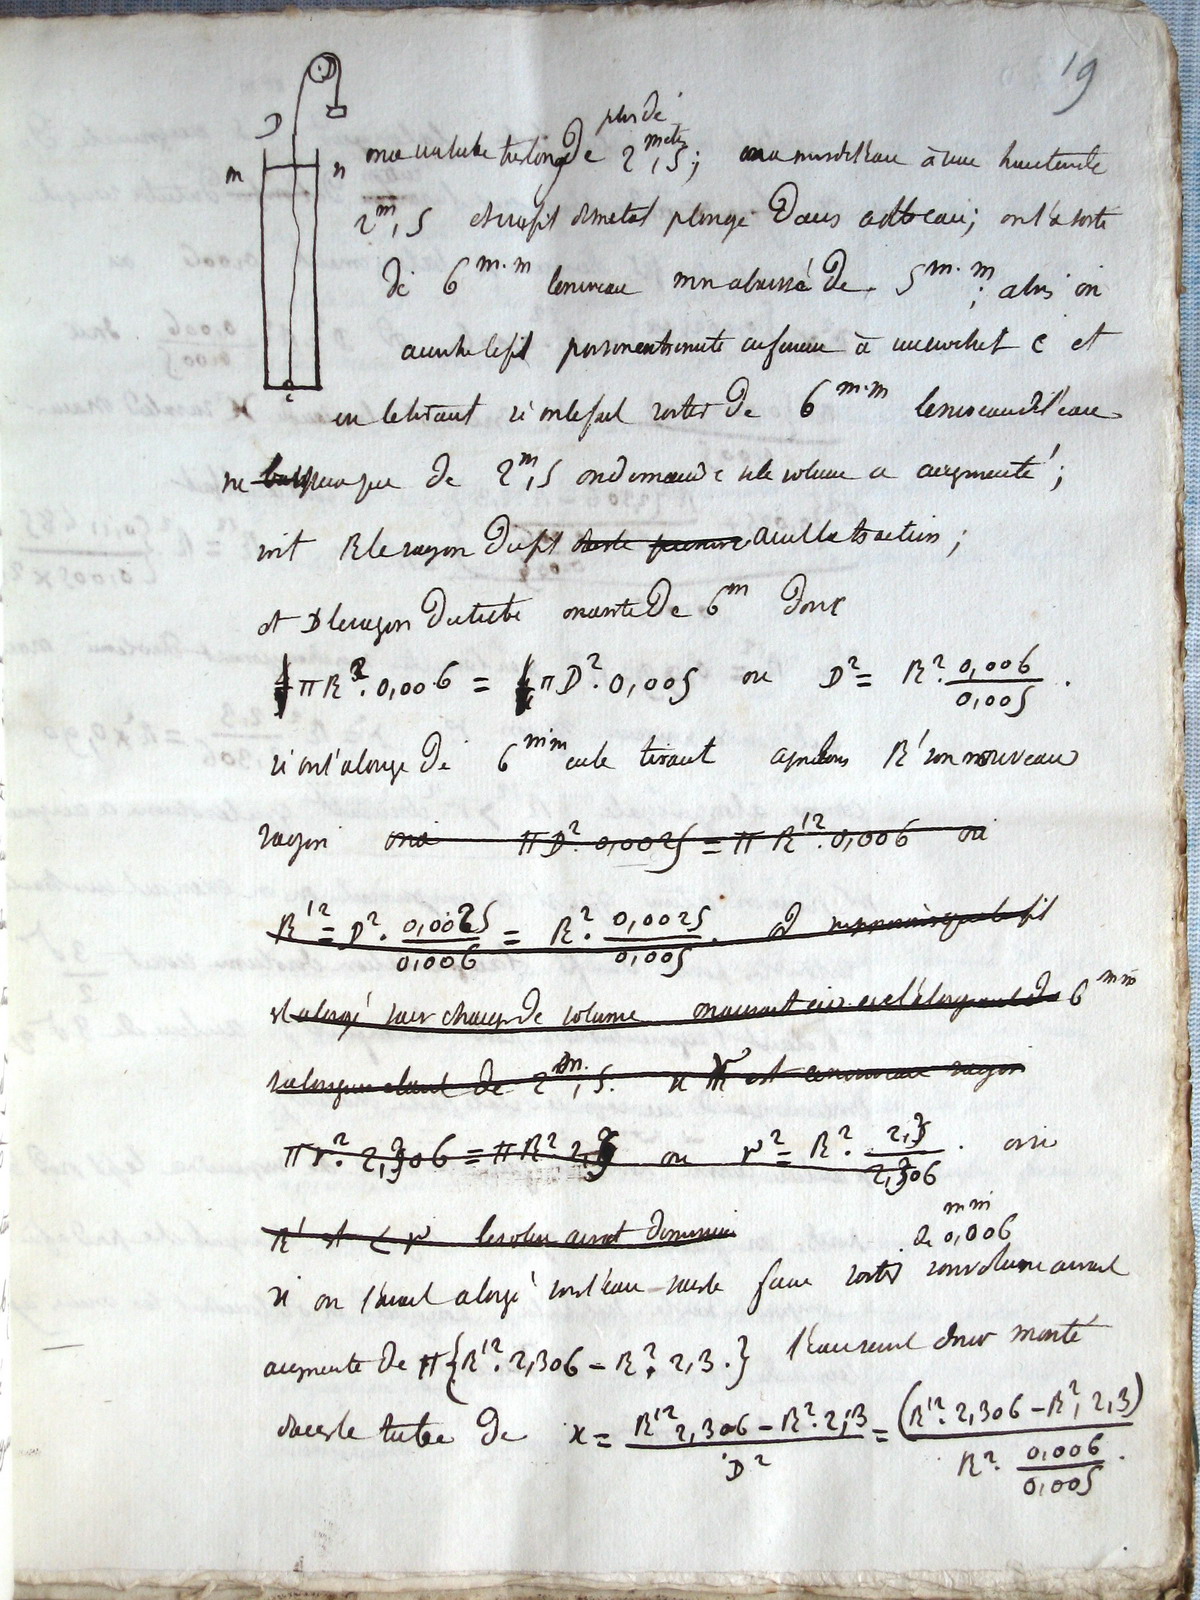 19
D
m n
c
plus de
on a un tube très long de 2 mètres,5; on a mis de l'eau à une hauteur de
2m,5 et un fil de métal plongé dans cette eau; on l'a sorti
de 6 m.m le niveau mn a baissé de 5 m.m; alors on
attache le fil par son extrémité inférieure à un crochet C et
en le tirant si on le fait sortir de 6 m.m le niveau de l'eau
ne baisse que de 2m,5 on demande si le volume a augmenté;
soit R le rayon du fil avant la traction;
et D le rayon du tube on a sorti de 6m donc
πR². 0,006 = πD². 0,005 ou D² = R². 0,006/0,005.
si on l'alonge de 6 mm en le tirant appelons R' son nouveau
rayon on a πD². 0,0025 = πR'². 0,006 ou
R'² = D². 0,0025/0,006 = R². 0,0025/0,005. le fil
est alongé sans changer de volume 6 mm
sa longueur étant de 2m,5. si r est le nouveau rayon
πr². 2,306 = πR² 2,3 ou r² = R². 2,3/2,306. or si
R' est < r le volume aurait diminué
de 0,006 mm
si on l'avait alongé sous l'eau sans le faire sortir son volume aurait
augmenté de π{R'². 2,306 − R². 2,3.} l'eau serait donc monté
dans le tube de x = R'² 2,306 − R². 2,3/D² = (R'². 2,306 − R², 2,3)/R². 0,006/0,005.